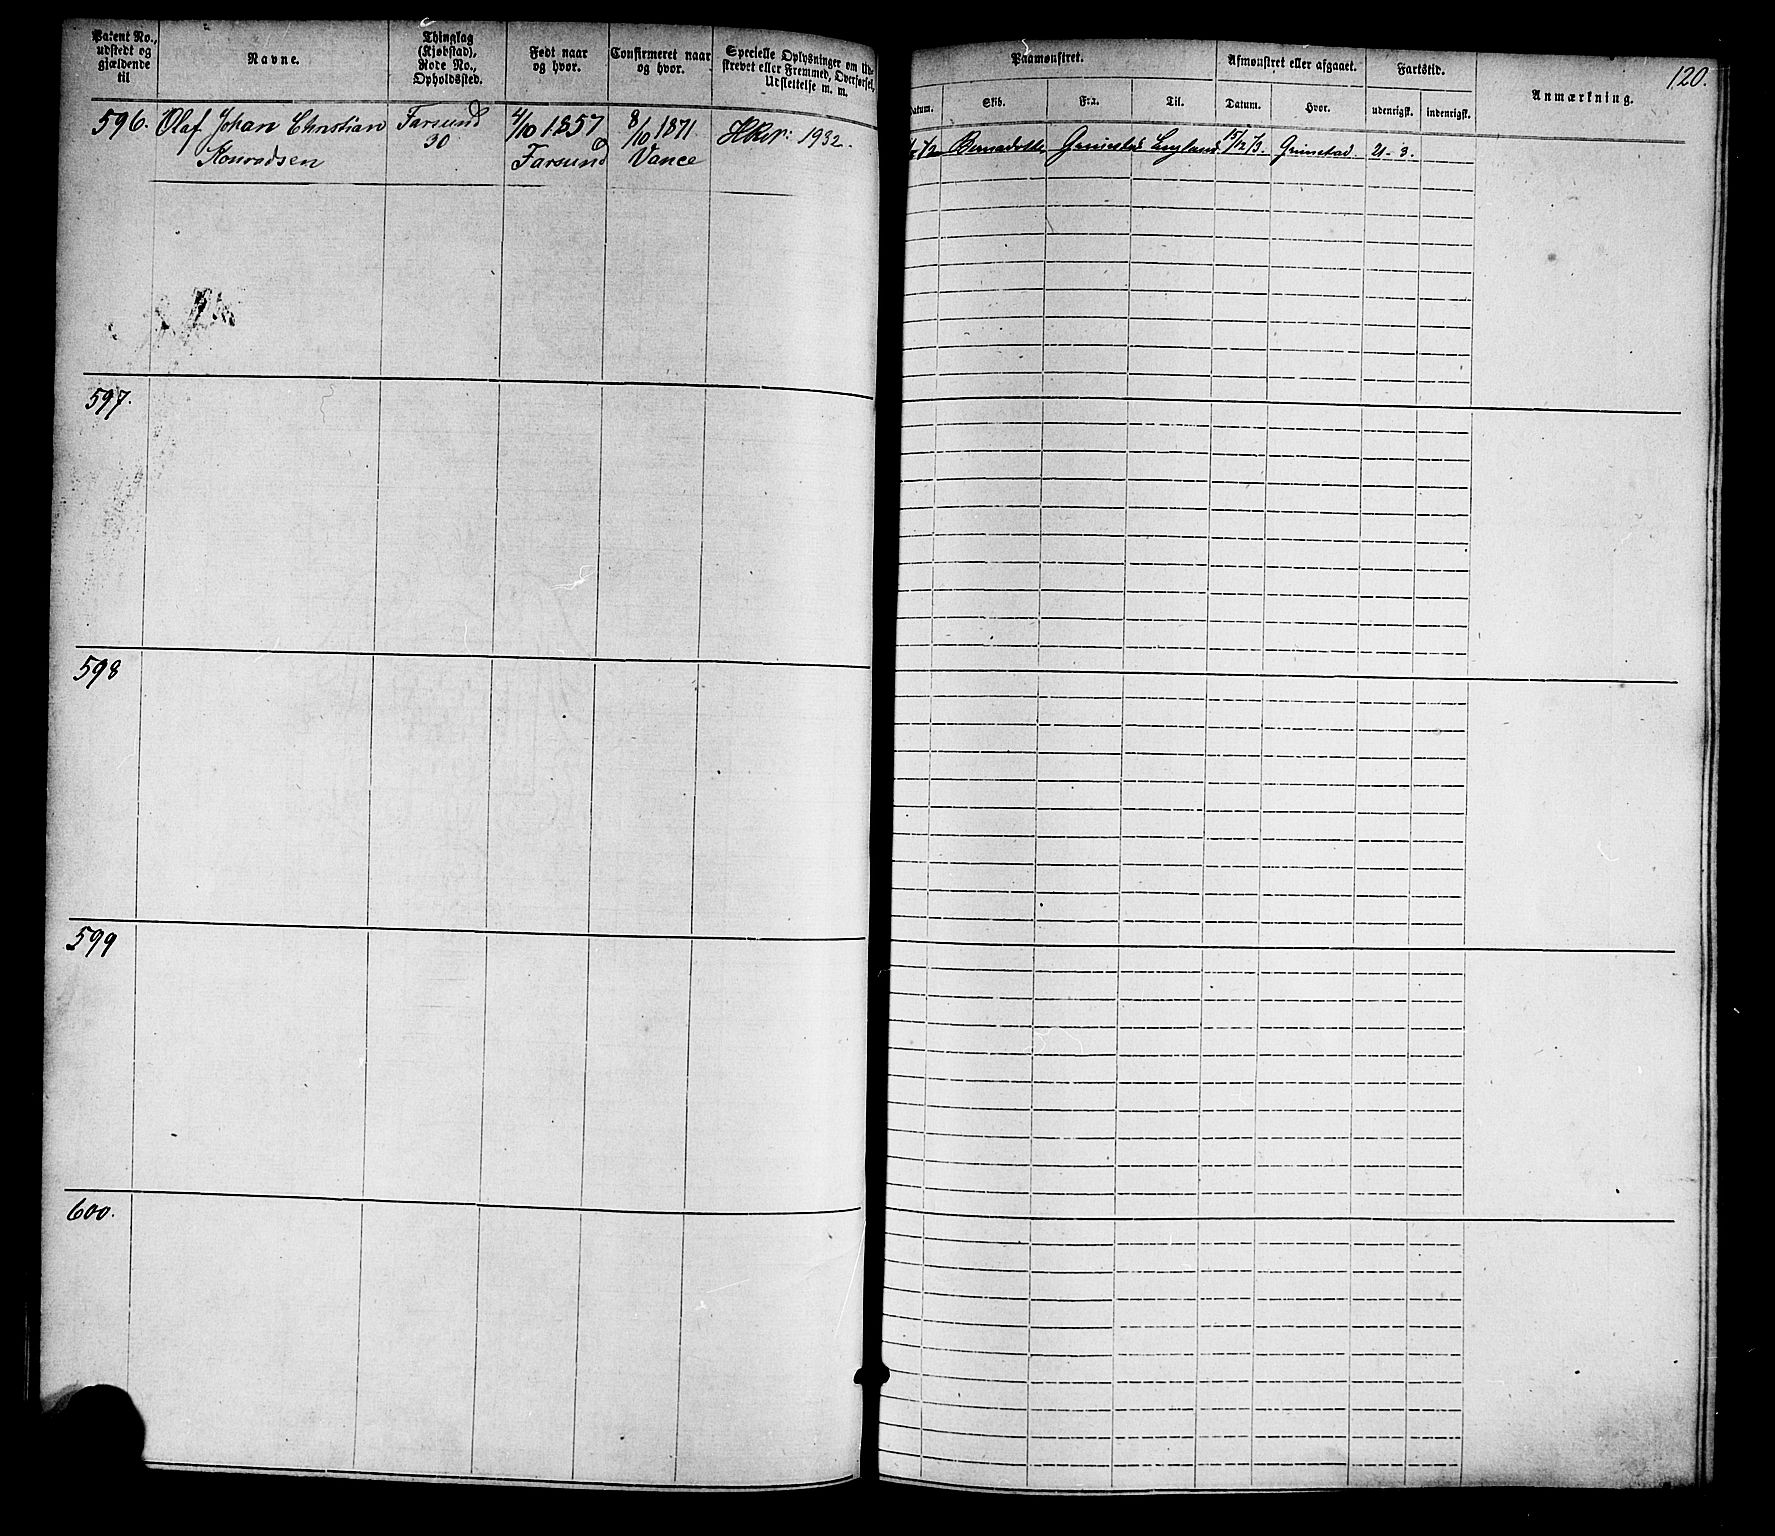 Patent No., udstedt og gjældende til
Navne.
Thinglag (Kjøbstad), Rode No., Opholdssted.
Født naar og hvor.
Confirmeret naar og hvor.
Specielle Oplysninger om Ud-
skrevet eller Fremmed, Overførsel,
Udslettelse m. m.
596.
Olaf Johan Christian
Konradsen
Farsund
30
4/10 1857
Farsund
8/10 1871
Vance
1932.
597.
598
599
600.
120.
Paamønstret.
Afmønstret eller afgaaet.
Fartstid.
Anmærkning.
Datum.
Skib.
Fra.
Til.
Datum.
Hvor.
udenrigsk.
indenrigsk.
Bernadotte
England
15/12 73.
Grimstad
21-3.